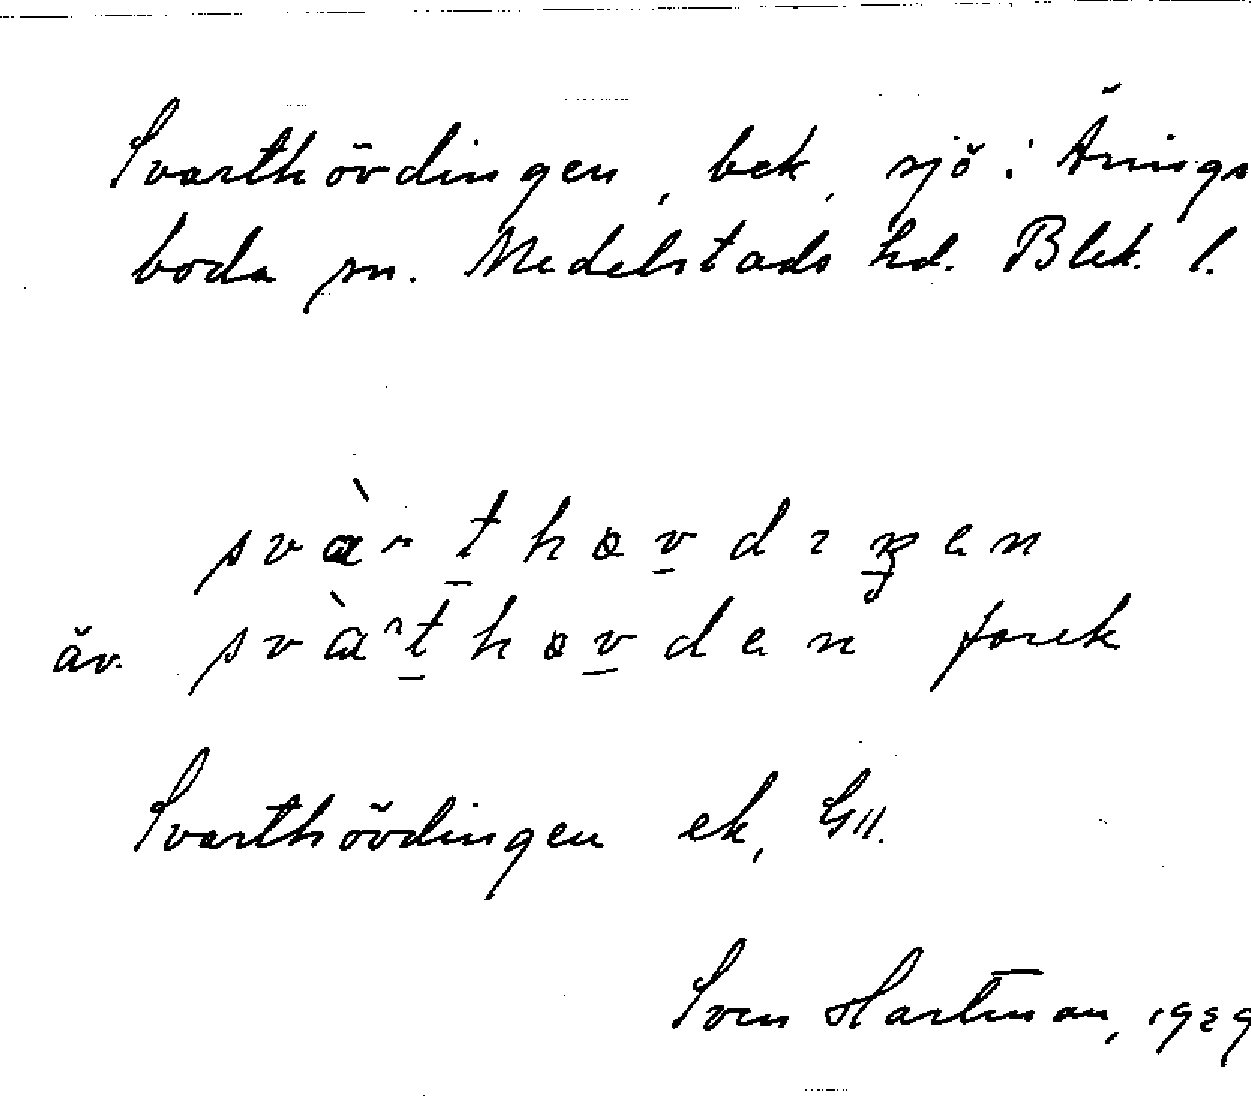 Svarthövdingen, bek, sjö i Årings
boda sn. Medelstads hd. Blek. l.
svàrthøvdıŋen
äv. svàrthøvden forek
Svarthövdingen ek, GII.
Sven Hartman, 1929